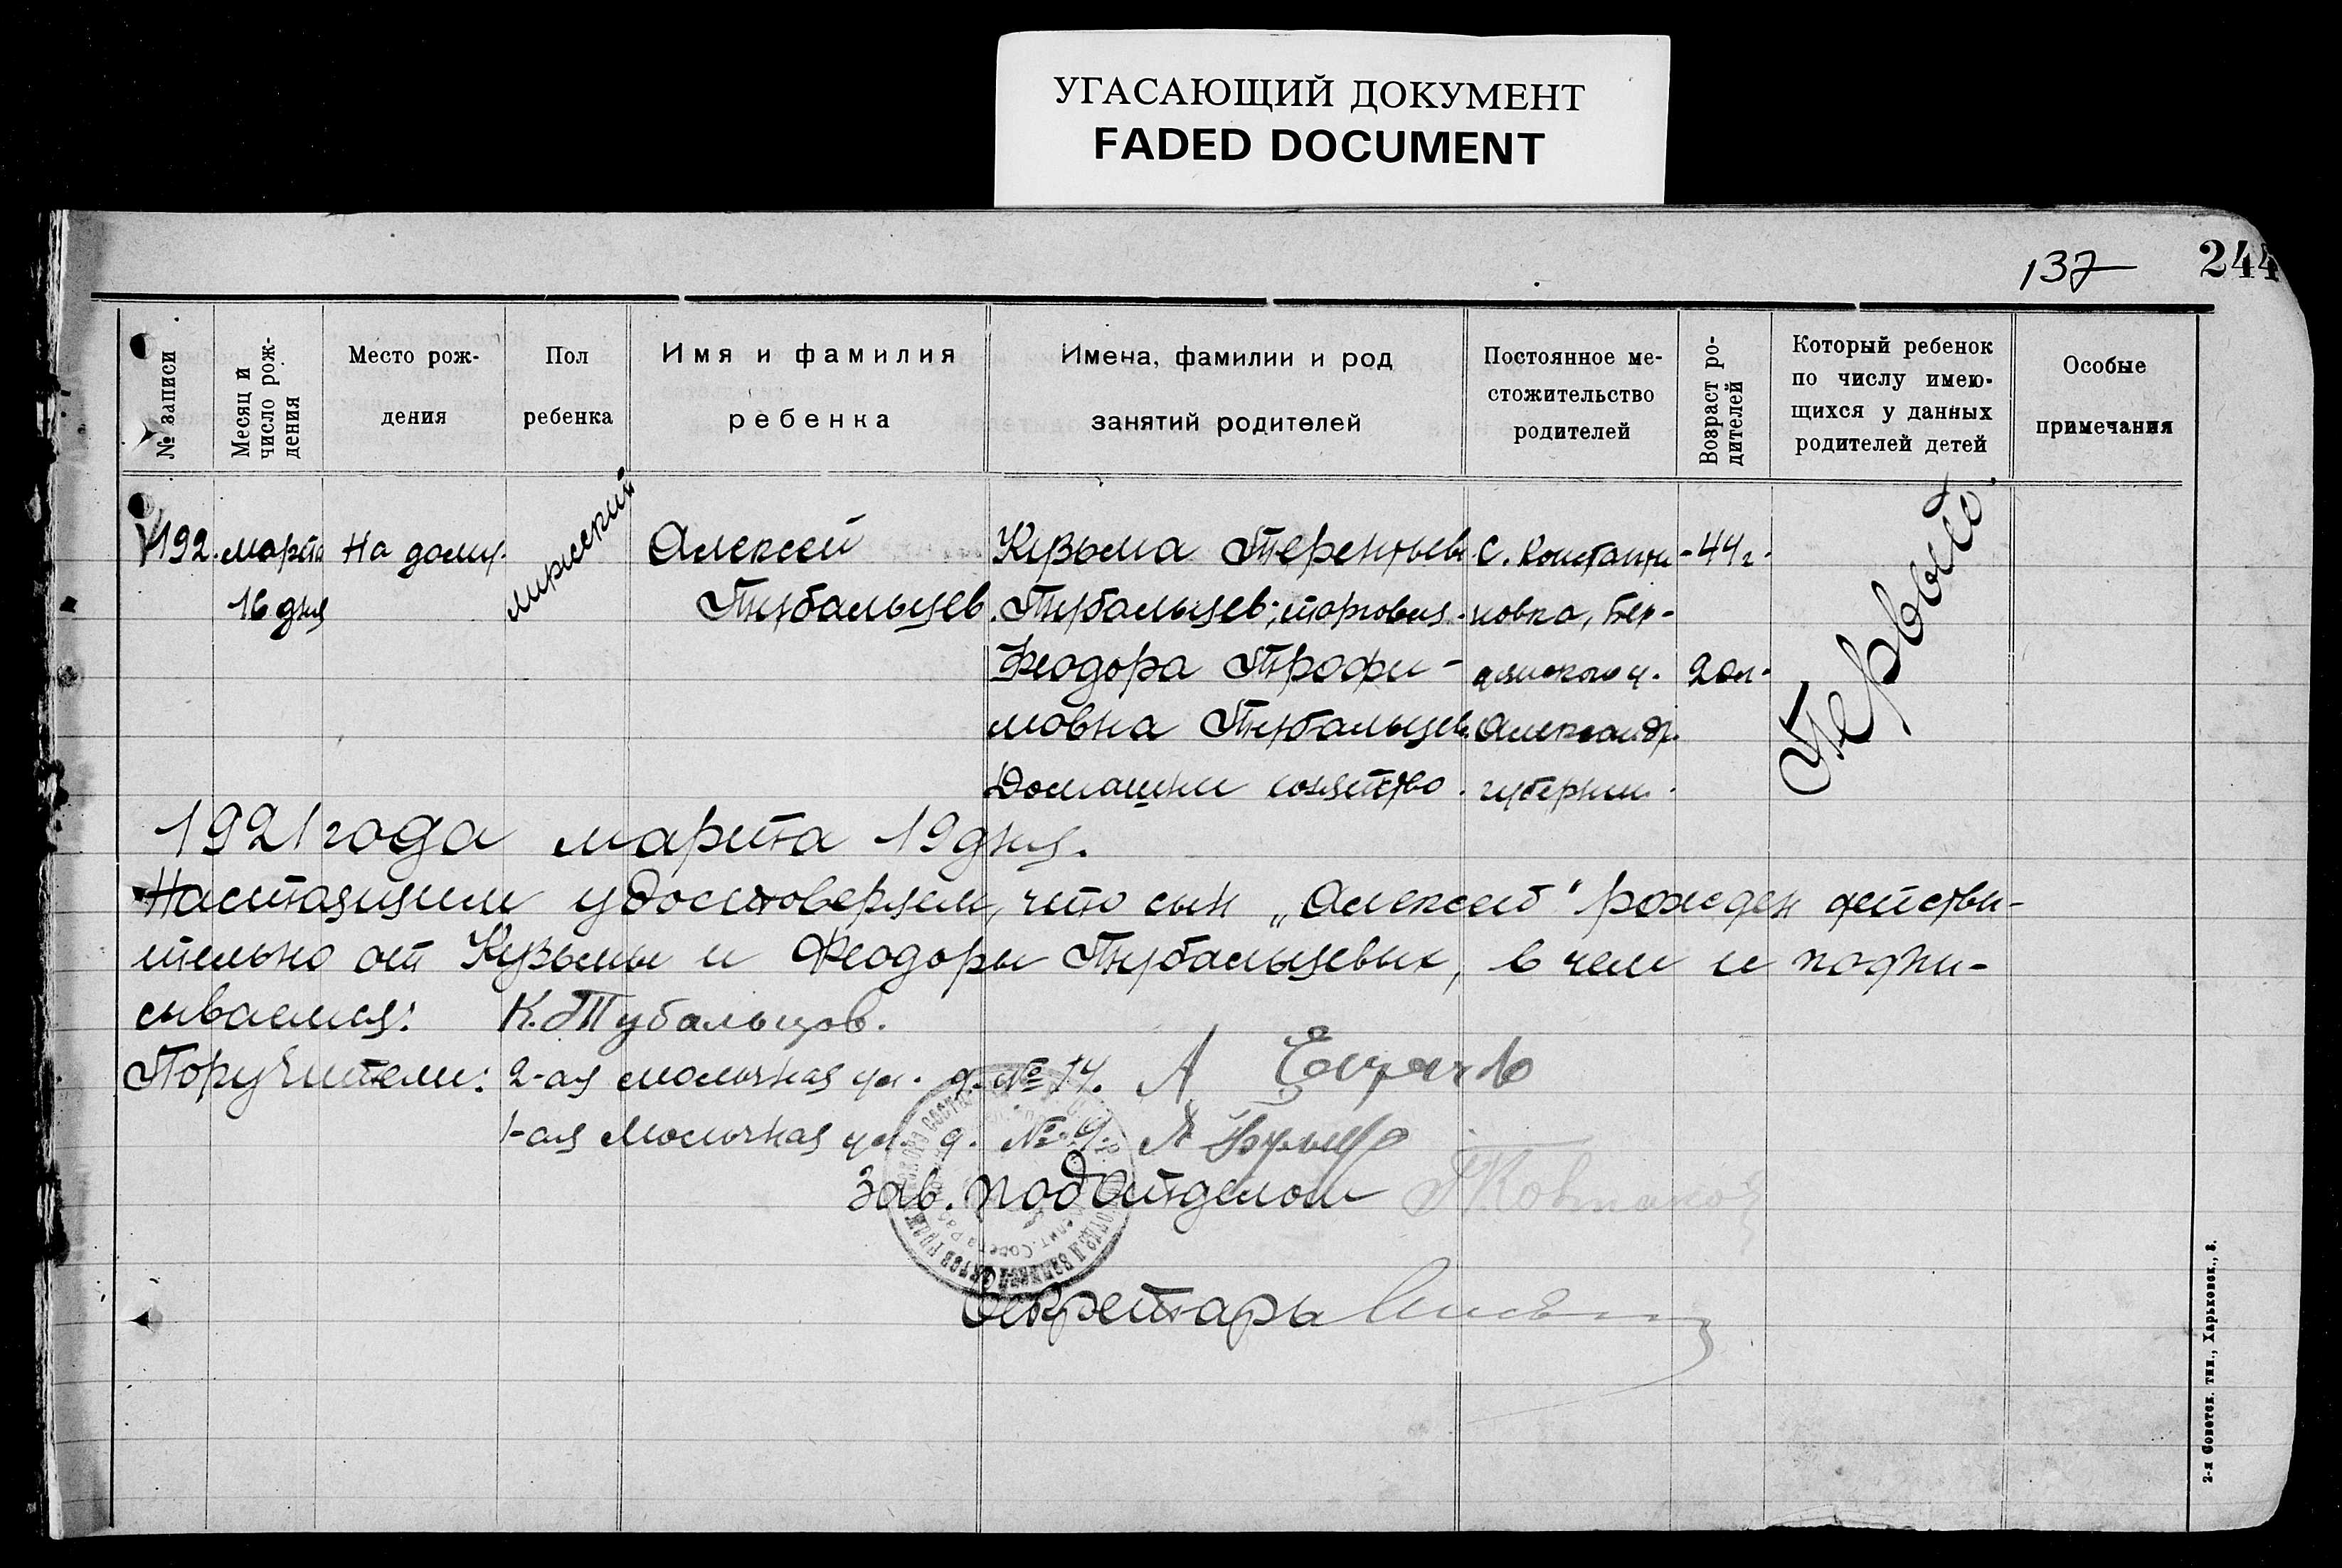 УГАСАЮЩИЙ ДОКУМЕНТ
FADED DOCUMENT
137
244
№ записи
Месяц и
число рож-
дения
Место рож-
дения
Пол
ребенка
Имя и фамилия
ребенка
Имена, фамилии и род
занятий родителей
Постоянное ме-
стожительство
родителей
Возраст ро-
дителей
Который ребенок
по числу имею-
щихся у данных
родителей детей
Особые
примечания
192.
марта
16 дня
На дому.
мужский
Алексей
Тубальцев
Кузьма Терентьев.
Тубальцев; торговля.
Феодора Трофи-
мовна Тубальцев.
Домашни хозяйство.
С. Константи-
новка, Бер-
дянского у.
Александр.
губернии.
44 г.
20 л.
Первый
1921 года марта 19 дня.
Настоящим удостоверяем, что сын „Алексей" рожден действи-
тельно от Кузьмы и Феодоры Тубальцевых, в чем и подпи-
сываемся: К. Тубальцов.
Поручители: 2-ая молочная ул. д. № 14. А
1-ая Молочная ул. д. № 9. Я
Зав. подотделом
Секретарь
2-я Советск. тип., Харьковск., 8.